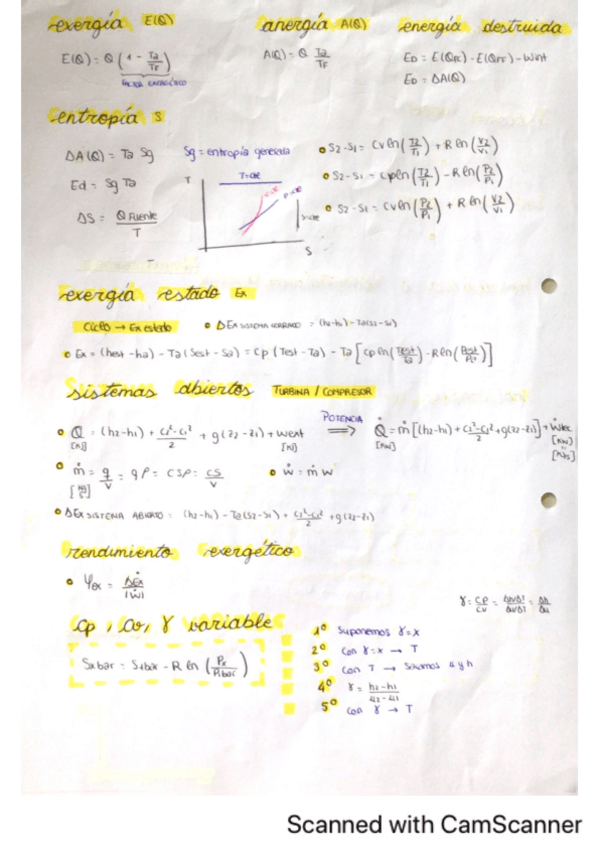 exergía E(Q)
anergía A(Q)
energía destruida
E(Q) = Q (1 - Ta/TF)
FACTOR EXERGÉTICO
A(Q) = Q Ta/TF
ED = E(QFC) - E(QFF) - Wint
ED = ΔA(Q)
entropía S
ΔA(Q) = Ta Sg
Sg = entropía generada
Ed = Sg Ta
ΔS = Q Fuente / T
T
T=cte
P=cte
S
S2-S1 = Cv ln(T2/T1) + R ln(V2/V1)
S2-S1 = Cp ln(T2/T1) - R ln(P2/P1)
S2-S1 = Cv ln(P2/P1) + R ln(V2/V1)
exergía estado Ex
Ciclo → Ex estado
Δ Ex SISTEMA CERRADO = (h2-h1) - Ta(S2-S1)
Ex = (hest - ha) - Ta (Sest - Sa) = Cp (Test - Ta) - Ta [Cp ln(Test/Ta) - R ln(Pest/Pa)]
sistemas abiertos TURBINA / COMPRESOR
Q = (h2-h1) + (C2²-C1²)/2 + g(z2-z1) + Wext
[KJ]
[KJ]
POTENCIA
⟹
Q̇ = ṁ [(h2-h1) + (C2²-C1²)/2 + g(z2-z1)] + Ẇ
[KW]
[KW]
ṁ = q/v = qρ = CSρ = CS/v
Ẇ = ṁ W
Δ Ex SISTEMA ABIERTO = (h2-h1) - Ta(S2-S1) + (C2²-C1²)/2 + g(z2-z1)
rendimiento exergético
φex = ΔĖx / |Ẇ|
γ = CP/CV = = Δh/Δu
Cp, Cv, γ variable
Sxbar = S1bar - R ln (Px/P1bar)
1º Suponemos γ=x
2º Con γ=x → T
3º Con T → Sacamos u y h
4º γ = (h2-h1)/(u2-u1)
5º Con γ → T
Scanned with CamScanner